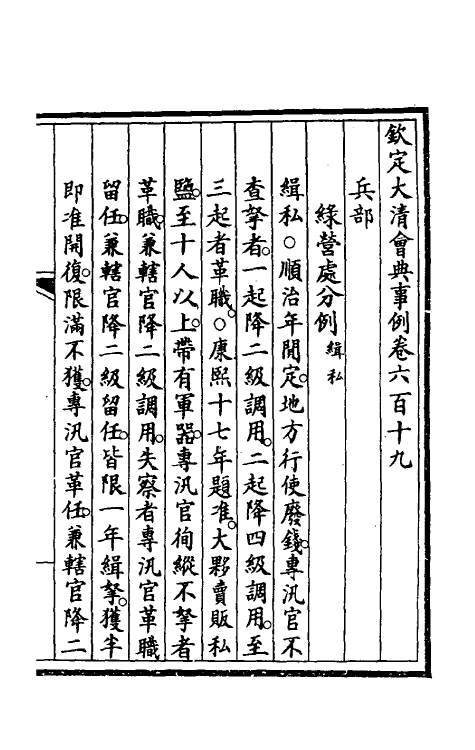 欽定大清會典事例卷六百十九
兵部
綠營處分例 緝私
緝私○順治年閒定。地方行使廢錢。專汛官不
查拏者。一起降二級調用。二起降四級調用。至
三起者革職。○康熙十七年題准。大夥賣販私
鹽。至十人以上。帶有軍器。專汛官徇縱不拏者
革職。兼轄官降二級調用。失察者專汛官革職
留任。兼轄官降二級留任。皆限一年緝拏。獲半
即准開復。限滿不獲。專汛官革任。兼轄官降二